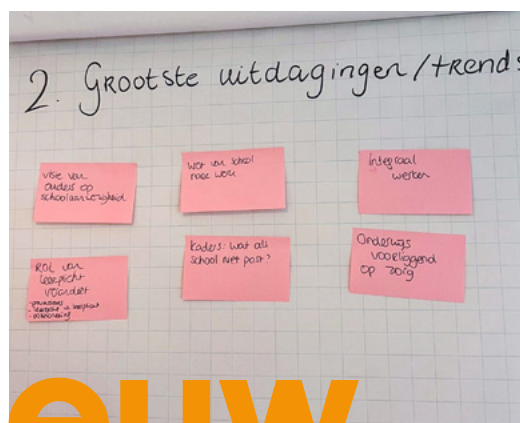 2. Grootste uitdagingen/trends
visie van
ouders op
schoolaanwezigheid
Wet van school
naar werk
Integraal
werken
ROL van
leerplicht
verandert
Kaders: wat als
school niet past?
Onderwijs
voorliggend
op zorg
euw